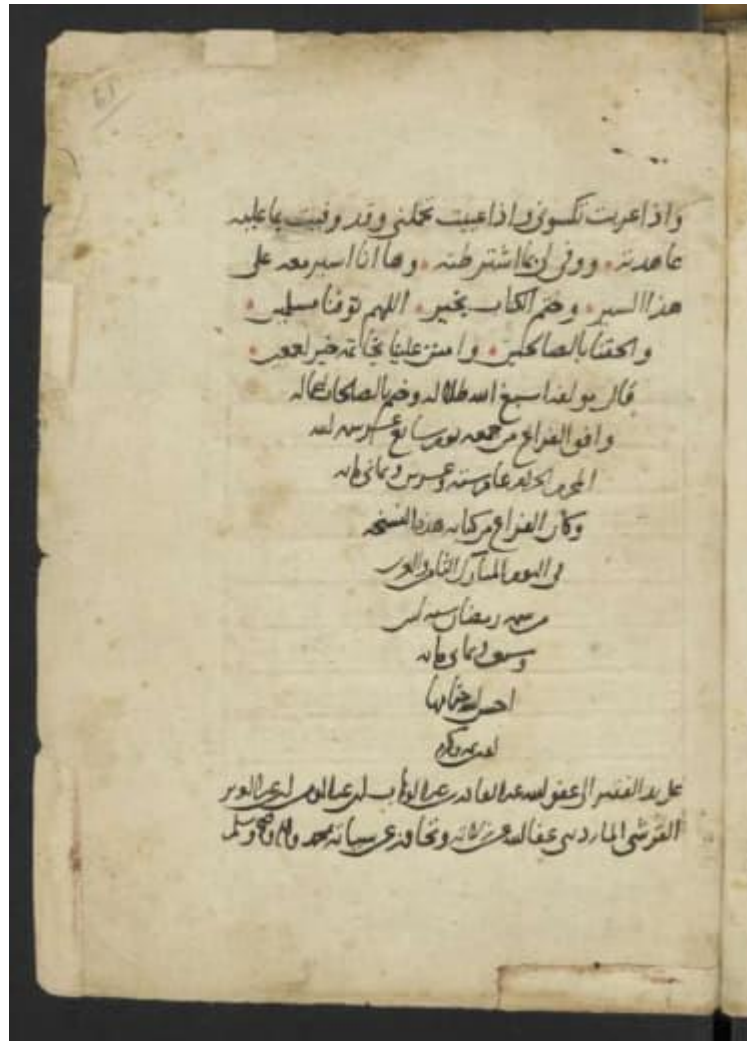 واذا عريت تكسوني واذا عييت تحملني وقد وفيت بما عليه
عاهدته ووفى لي بما اشترطته وها انا اسير معه على
هذا السير وختم الكتاب بخير اللهم توفنا مسلمين
والحقنا بالصالحين وامنن علينا بخاتمة خير لععىں
قال مولفه اسبغ الله ظلاله وختم بالصالحات اعماله
وافق الفراغ من جمعه يوم سابع عشرين شهر الله
المحرم الحرام عام ستة وعشرين وثماني مائه
وكان الفراغ من كتابة هذه النسخه
في اليوم المبارك الثامن والعشرين
من شهر رمضان سنة
وثماني مائه
احسن الله ختامها
بمنه وكرمه
على يد الفقير الى عفو الله عبد القادر بن عبد الوهاب بن عبد المومن بن عبد العزيز
القرشي المارديني عفا الله عن زلاته وتجاوز عن سيياته بمحمد واله وصحبه وسلم